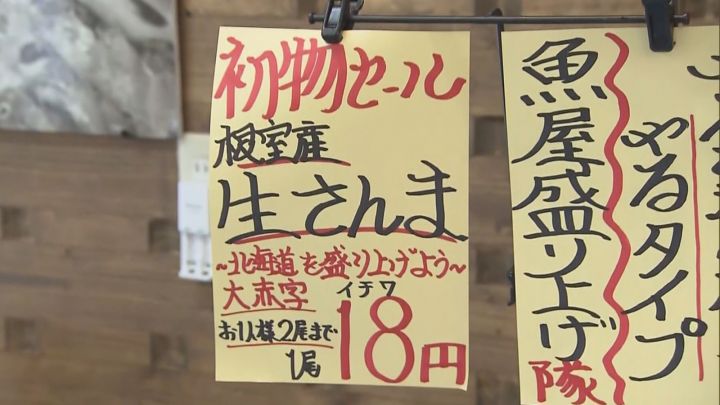 初物セール
根室産
生さんま
~北海道を盛り上げよう~
大赤字
お1人様2尾まで
1尾
イチワ
18円
魚屋盛り上げ隊
やるタイプ